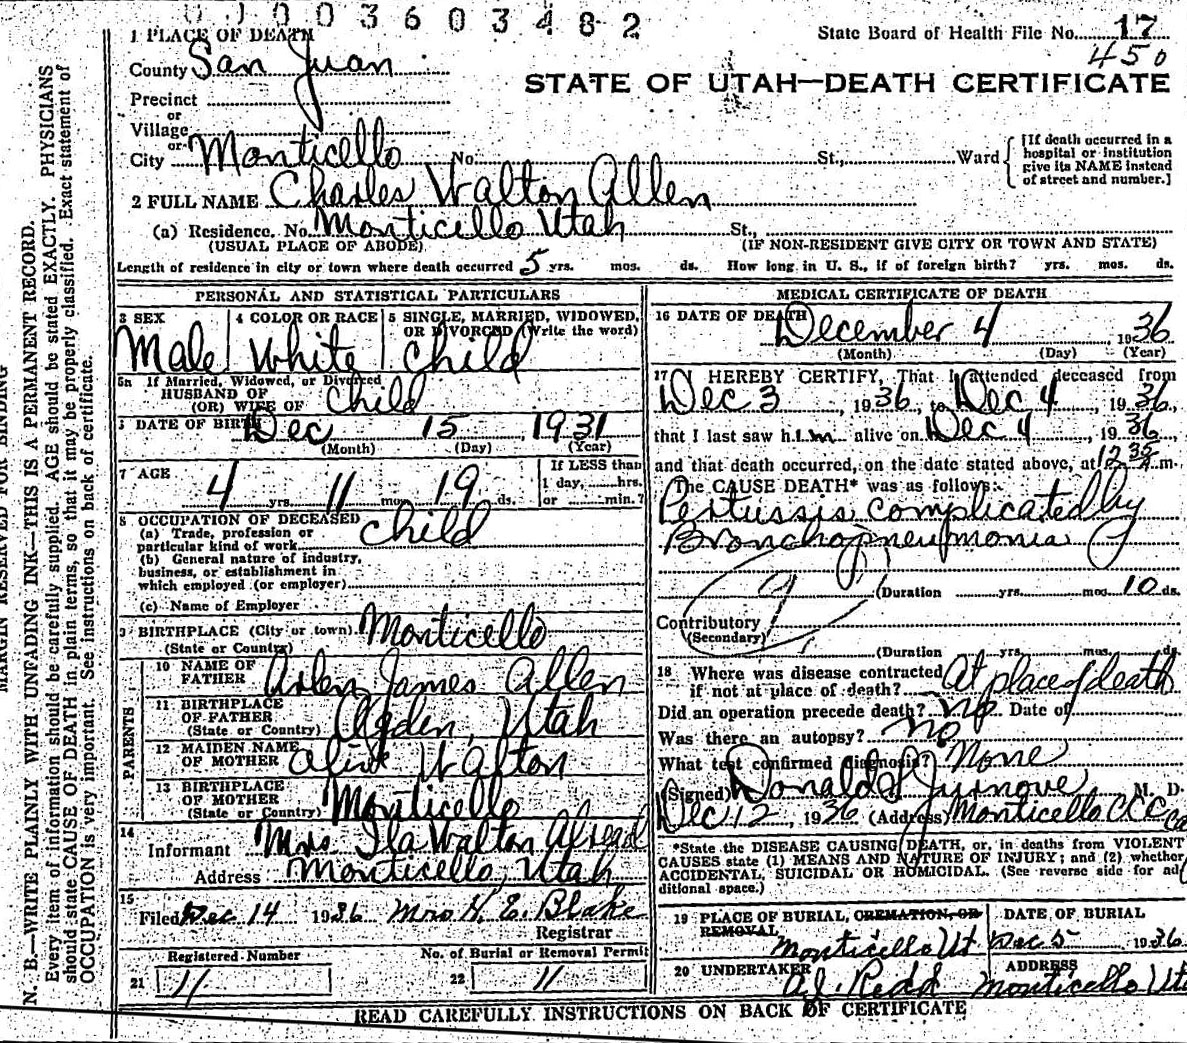 0 0 0 3 6 0 3 4 8 2
1 PLACE OF DEATH
State Board of Health File No. 17
450
County San Juan
STATE OF UTAH—DEATH CERTIFICATE
Precinct
or
Village
or
City Monticello No. St., Ward
[If death occurred in a hospital or institution give its NAME instead of street and number.]
2 FULL NAME Charles Walton Allen
(a) Residence. No. Monticello Utah St.,
(USUAL PLACE OF ABODE) (IF NON-RESIDENT GIVE CITY OR TOWN AND STATE)
Length of residence in city or town where death occurred 5 yrs. mos. ds. How long in U. S., if of foreign birth? yrs. mos. ds.
PERSONAL AND STATISTICAL PARTICULARS
3 SEX 4 COLOR OR RACE 5 SINGLE, MARRIED, WIDOWED,
OR DIVORCED (Write the word)
Male White Child
5a If Married, Widowed, or Divorced
HUSBAND OF
(OR) WIFE OF Child
DATE OF BIRTH Dec 15 1931
(Month) (Day) (Year)
7 AGE If LESS than
1 day, hrs.
4 yrs. 11 mos. 19 ds. or min.?
8 OCCUPATION OF DECEASED
(a) Trade, profession or
particular kind of work Child
(b) General nature of industry,
business, or establishment in
which employed (or employer)
(c) Name of Employer
9 BIRTHPLACE (City or town) Monticello
(State or Country)
PARENTS
10 NAME OF
FATHER Arlen James Allen
11 BIRTHPLACE
OF FATHER
(State or Country) Ogden, Utah
12 MAIDEN NAME
OF MOTHER Walton
13 BIRTHPLACE
OF MOTHER
(State or Country) Monticello
14
Informant Mrs Ila Walton
Address Monticello, Utah
15
Filed Dec 14 1936 Mrs H. E. Blake
Registrar
Registered Number No. of Burial or Removal Permit
21 11 22 11
MEDICAL CERTIFICATE OF DEATH
16 DATE OF DEATH
December 4 1936
(Month) (Day) (Year)
17 I HEREBY CERTIFY, That I attended deceased from
Dec 3, 1936, to Dec 4, 1936,
that I last saw him alive on Dec 4, 1936,
and that death occurred, on the date stated above, at 12 35 A m.
The CAUSE DEATH* was as follows:
Pertussis complicated by
Bronchopneumonia
9
(Duration yrs. mos. 10 ds.
Contributory
(Secondary)
(Duration yrs. mos. ds.
18 Where was disease contracted
if not at place of death? At place of death
Did an operation precede death? no Date of
Was there an autopsy? no
What test confirmed diagnosis? None
(Signed) Donald J M. D.
Dec 12, 1936 (Address) Monticello CCC
*State the DISEASE CAUSING DEATH, or, in deaths from VIOLENT
CAUSES state (1) MEANS AND NATURE OF INJURY; and (2) whether
ACCIDENTAL, SUICIDAL OR HOMICIDAL. (See reverse side for ad
ditional space.)
19 PLACE OF BURIAL, CREMATION, OR DATE OF BURIAL
REMOVAL
Monticello Ut Dec 5 1936
20 UNDERTAKER ADDRESS
A.J. Redd Monticello Ut
READ CAREFULLY INSTRUCTIONS ON BACK OF CERTIFICATE
MARGIN RESERVED FOR BINDING
N. B.—WRITE PLAINLY WITH UNFADING INK—THIS IS A PERMANENT RECORD.
Every item of information should be carefully supplied. AGE should be stated EXACTLY. PHYSICIANS
should state CAUSE OF DEATH in plain terms, so that it may be properly classified. Exact statement of
OCCUPATION is very important. See instructions on back of certificate.